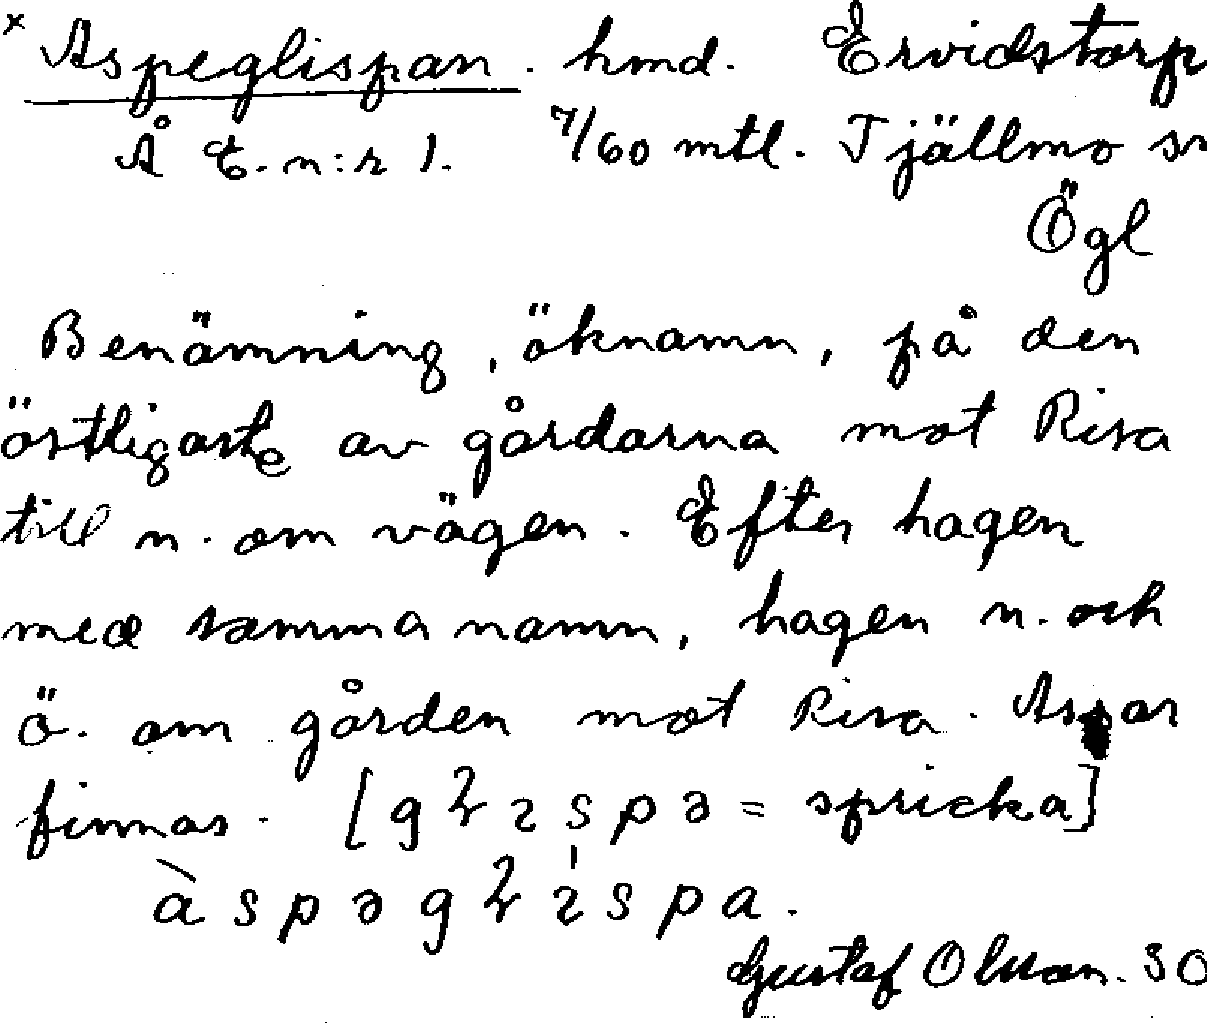 x Aspeglispan. hmd. Ervidstorp
Å E. n:r 1. 7/60 mtl. Tjällmo sn
Ögl
Benämning, öknamn, på den
östligaste av gårdarna mot Risa
till n. om vägen. Efter hagen
med samma namn, hagen n. och
ö. om gården mot Risa. Aspar
finnas. [ = spricka]
Gustaf Olsson. 30